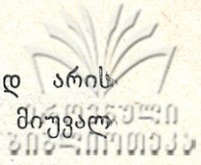 დ არის
მიუვალ
ეროვნული
ბიბლიოთეკა